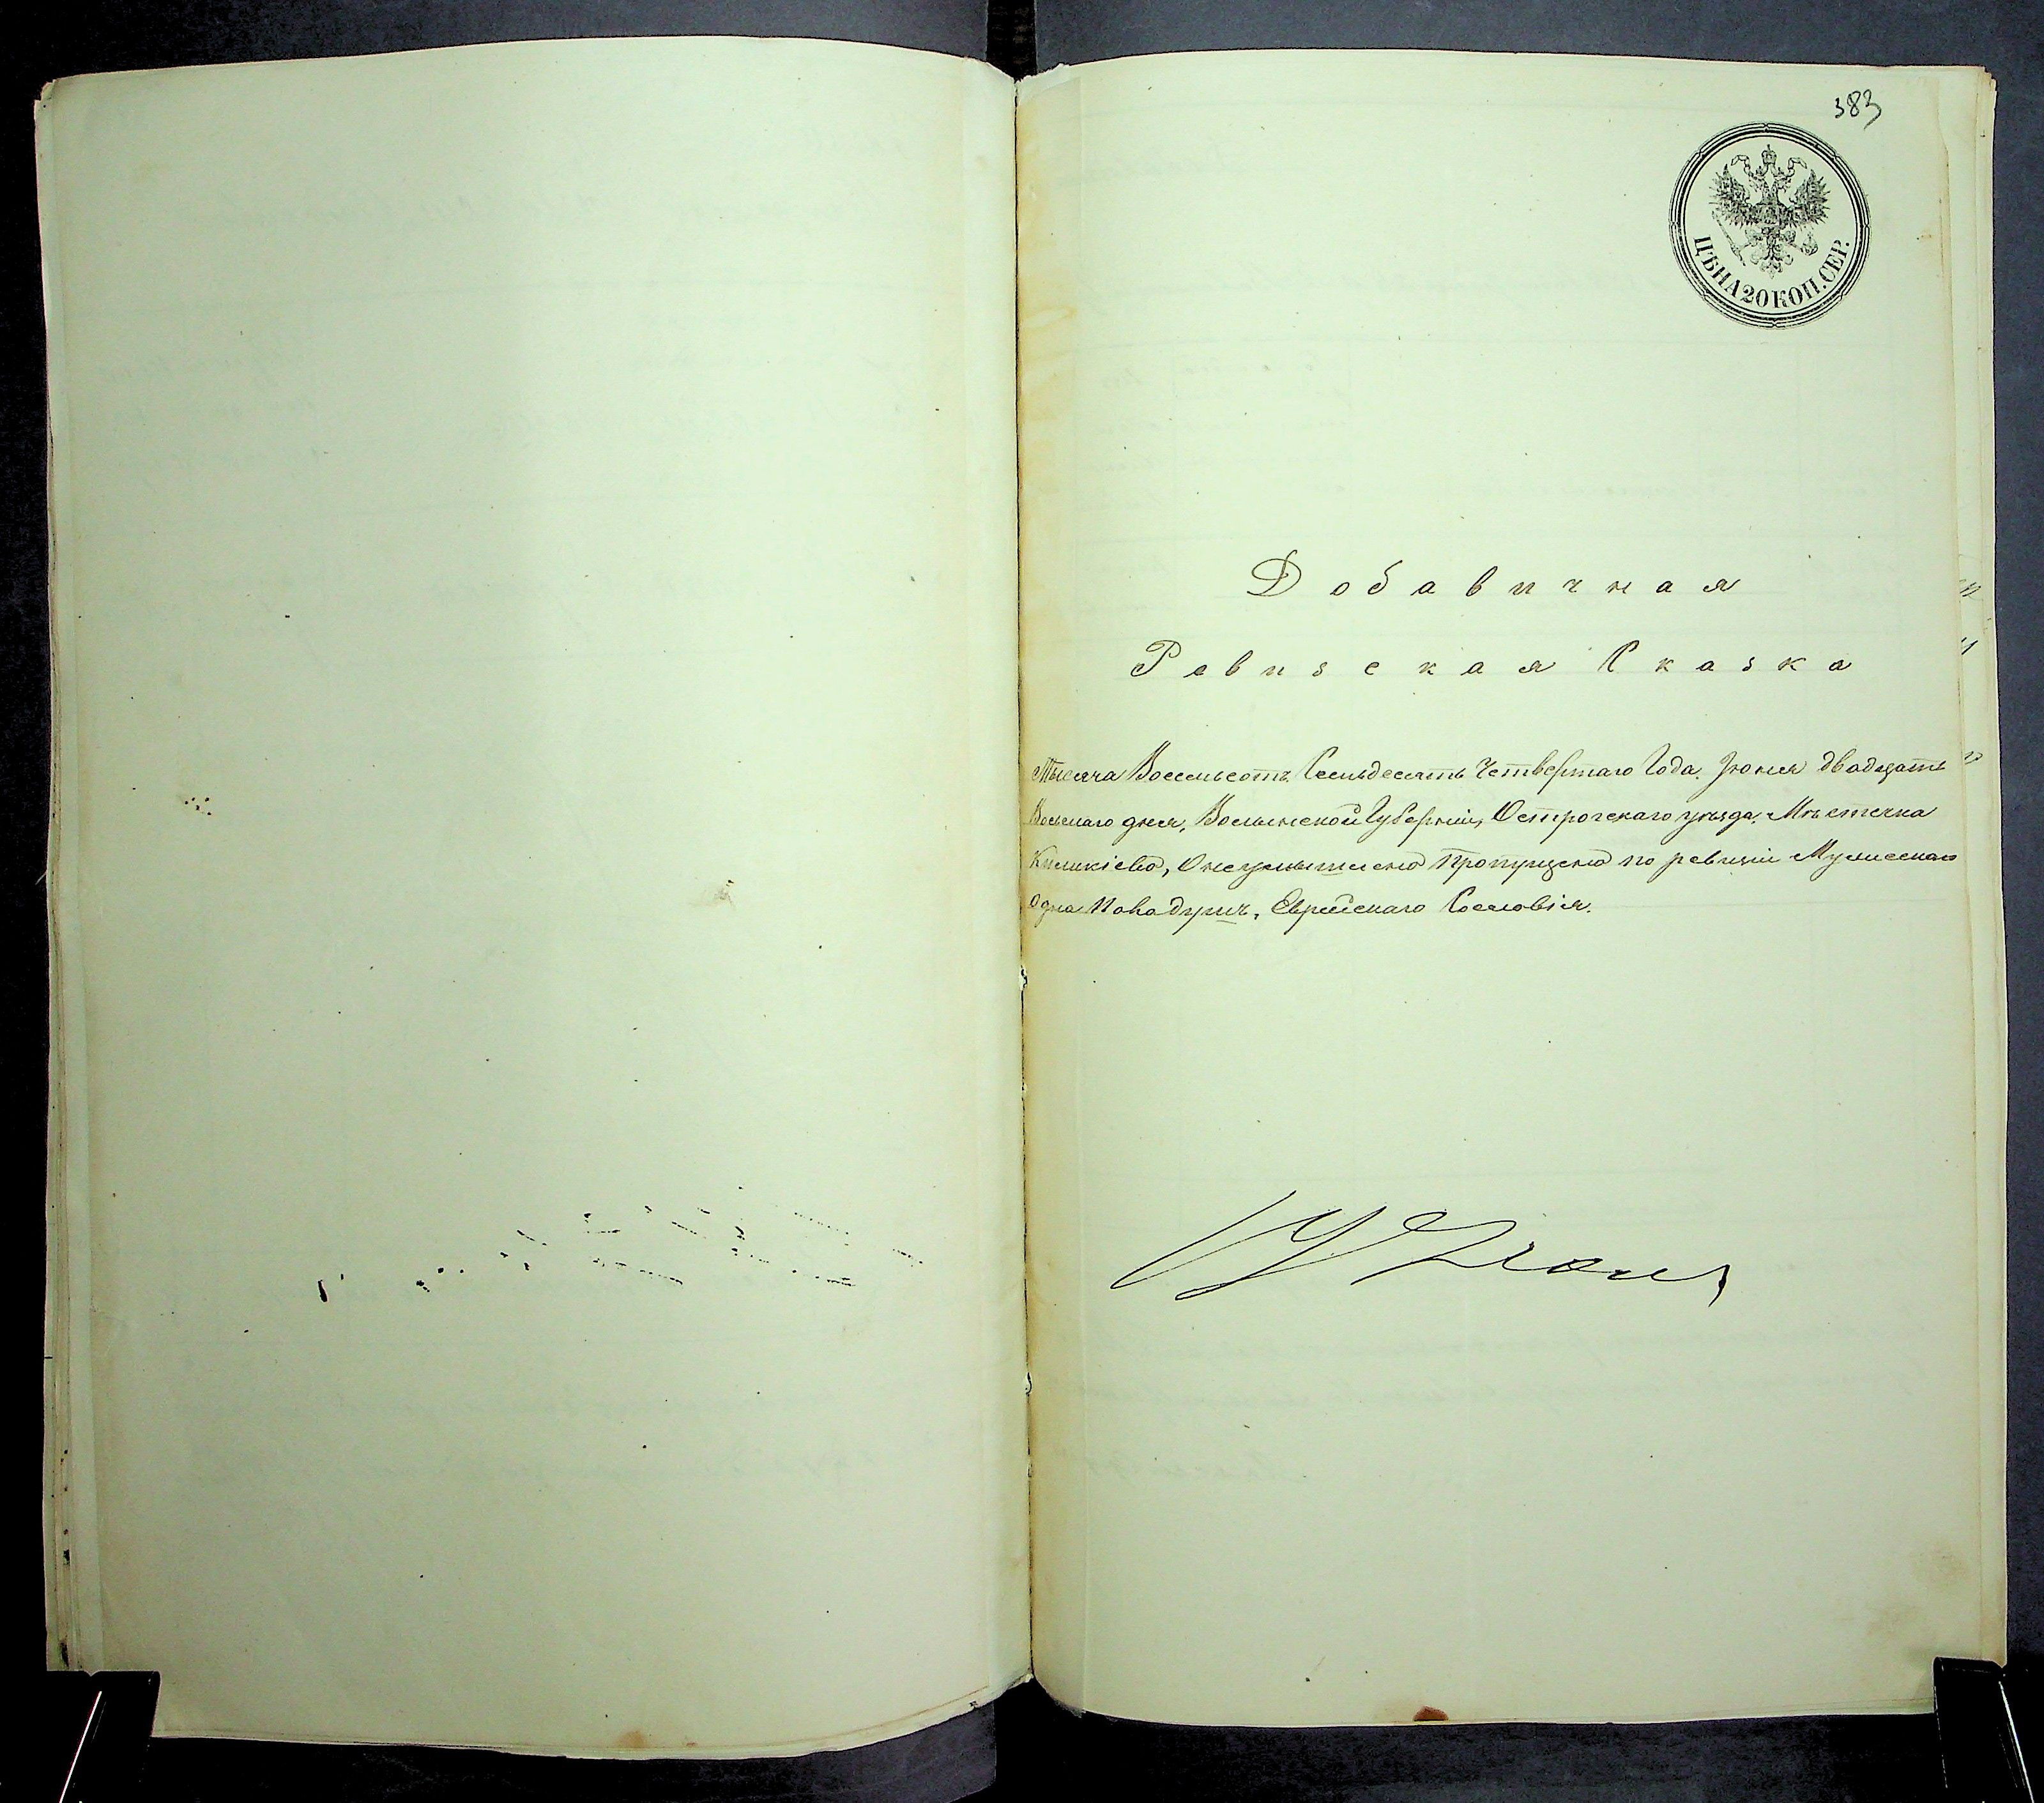 383
ЦѢНА 20 КОП. СЕР.
Добавичная
Ревизская Сказка
Тысяча Восемьсотъ Семьдесятъ Четвертаго Года. Іюня двадцать
Восьмаго дня, Волынской Губерніи, Острогскаго уѣзда, Мѣстечка
Киликіева, О неумышлено пропущено по ревизіи Мужескаго
одна нова душъ, Еврейскаго Сословія.